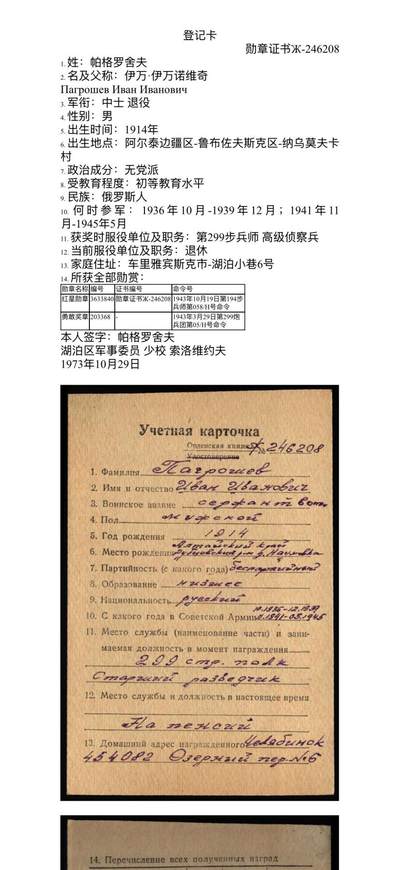 登记卡
勋章证书Ж-246208
1. 姓：帕格罗舍夫
2. 名及父称：伊万·伊万诺维奇
Пагрошев Иван Иванович
3. 军衔：中士 退役
4. 性别：男
5. 出生时间：1914年
6. 出生地点：阿尔泰边疆区-鲁布佐夫斯克区-纳乌莫夫卡
村
7. 政治成分：无党派
8. 受教育程度：初等教育水平
9. 民族：俄罗斯人
10. 何时参军：1936年10月-1939年12月；1941年11
月-1945年5月
11. 获奖时服役单位及职务：第299步兵师 高级侦察兵
12. 当前服役单位及职务：退休
13. 家庭住址：车里雅宾斯克市-湖泊小巷6号
14. 所获全部勋赏：
勋章名称 编号 证书编号 命令号
红星勋章 3633840 勋章证书Ж-246208 1943年10月19日第194步
兵师第058/H号命令
勇敢奖章 203368 - 1943年3月29日第299炮
兵团第05/H号命令
本人签字：帕格罗舍夫
湖泊区军事委员 少校 索洛维约夫
1973年10月29日
Учетная карточка
Орденская книжка Ж № 246208
Удостоверение
1. Фамилия Пагрошев
2. Имя и отчество Иван Иванович
3. Воинское звание сержант
4. Пол мужской
5. Год рождения 1914
Алтайский край
6. Место рождения Рубцовский р-н
7. Партийность (с какого года) беспартийный
8. Образование низшее
9. Национальность русский
10. С какого года в Советской Армии
11. Место службы (наименование части) и зани-
маемая должность в момент награждения
299 стр. полк
Старший разведчик
12. Место службы и должность в настоящее время
На пенсии
13. Домашний адрес награжденного Челябинск
454082 Озерный пер. №6
14. Перечисление всех полученных наград